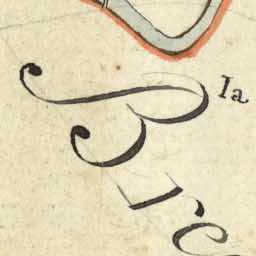 la
Bre